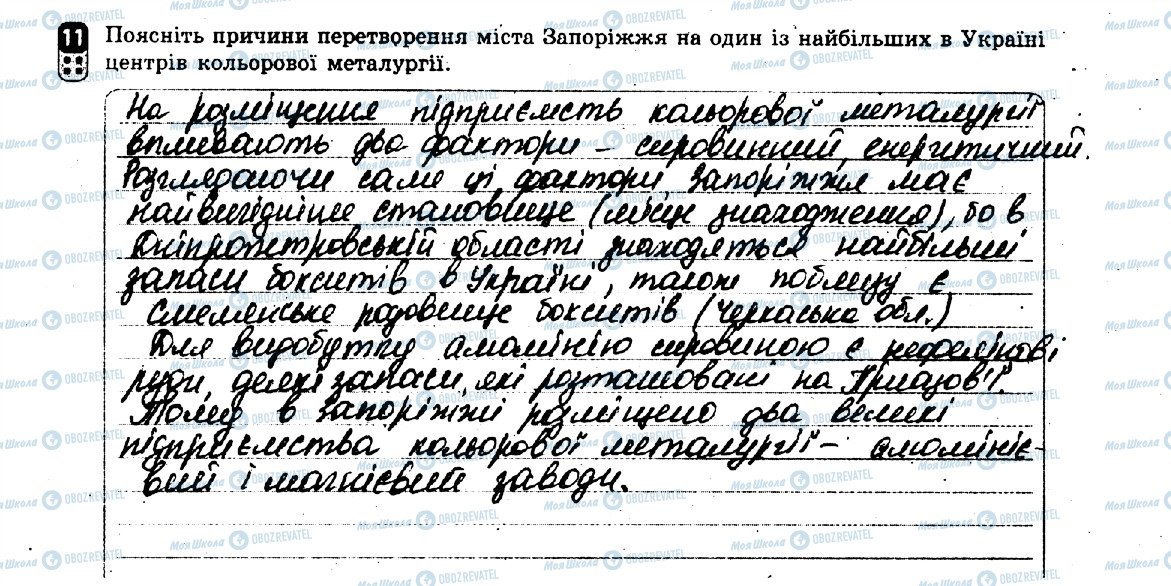 11 Поясніть причини перетворення міста Запоріжжя на один із найбільших в Україні
центрів кольорової металургії.
На розміщення підприємств кольорової металургії
впливають два фактори – сировинний, енергитичний.
Розглядаючи саме ці фактори Запоріжжя має
найвигідніше становище (місце знаходження), бо в
Дніпропетровській області знаходяться найбільші
запаси бокситів в Україні, також поблизу є
Смелянське родовище бокситів (Черкаська обл.)
Для видобутку алюмінію сировиною є нефелінові
руди, деякі запаси, які розташовані на Приазов'ї.
Тому в Запоріжжі розміщено два великі
підприємства кольорової металургії – алюмініє-
вий і магнієвий заводи.
МояШкола OBOZREVATEL